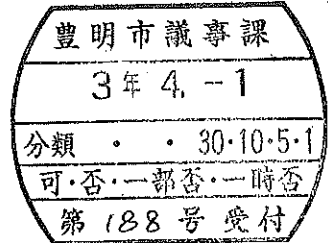 豊明市議事課
3年4.-1
分類 ・ ・ 30・10・5・1
可・否・一部否・一時否
第188号受付